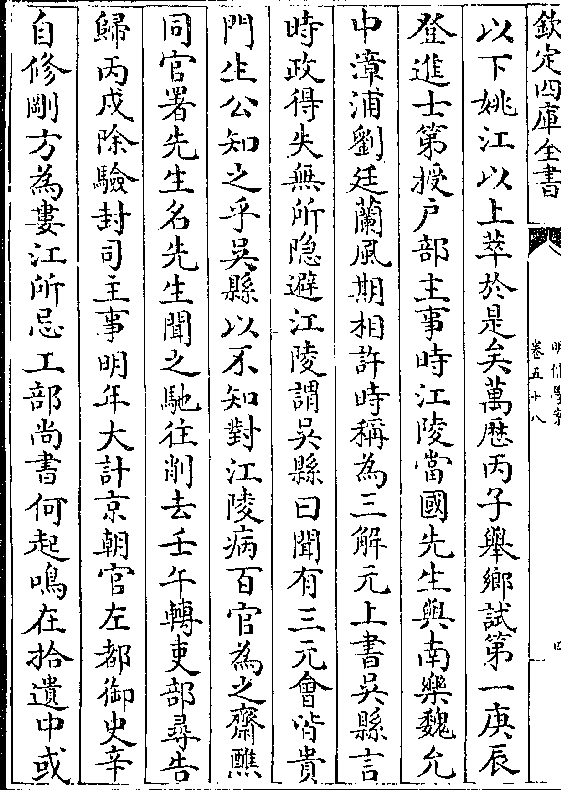 欽定四庫全書
明儒學案
卷五十八
四
以下姚江以上萃於是矣萬歴丙子舉鄉試第一庚辰
登進士第授户部主事時江陵當國先生與南樂魏允
中漳浦劉廷蘭風期相許時稱為三解元上書吳縣言
時政得失無所隐避江陵謂吳縣曰聞有三元會皆貴
門生公知之乎吳縣以不知對江陵病百官為之齋醮
同官署先生名先生聞之馳往削去壬午轉吏部尋告
歸丙戌除驗封司主事明年大計京朝官左都御史辛
自修剛方為婁江所忌工部尚書何起鳴在拾遺中或